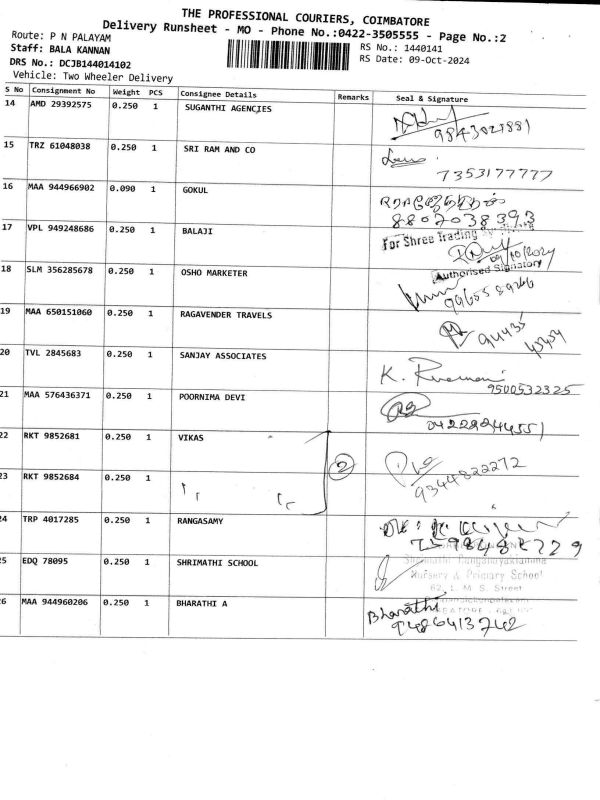 THE PROFESSIONAL COURIERS, COIMBATORE
Delivery Runsheet - MO - Phone No.:0422-3505555 - Page No.:2
Route: P N PALAYAM
RS No.: 1440141
Staff: BALA KANNAN
RS Date: 09-Oct-2024
DRS No.: DCJB144014102
Vehicle: Two Wheeler Delivery
S No Consignment No Weight PCS Consignee Details Remarks Seal & Signature
14 AMD 29392575 0.250 1 SUGANTHI AGENCIES
9843021881
15 TRZ 61048038 0.250 1 SRI RAM AND CO
7353177777
16 MAA 944966902 0.090 1 GOKUL
8807038393
17 VPL 949248686 0.250 1 BALAJI
For Shree Trading
09/10/2024
Authorised Signatory
18 SLM 356285678 0.250 1 OSHO MARKETER
9965589266
19 MAA 650151060 0.250 1 RAGAVENDER TRAVELS
94435
43434
20 TVL 2845683 0.250 1 SANJAY ASSOCIATES
K.
9500532325
21 MAA 576436371 0.250 1 POORNIMA DEVI
22 RKT 9852681 0.250 1 VIKAS
2
9344822272
23 RKT 9852684 0.250 1
24 TRP 4017285 0.250 1 RANGASAMY
25 EDQ 78095 0.250 1 SHRIMATHI SCHOOL
Nursery & Primary School
62, L. M. S. Street
26 MAA 944960206 0.250 1 BHARATHI A
Bharathi
9486413742